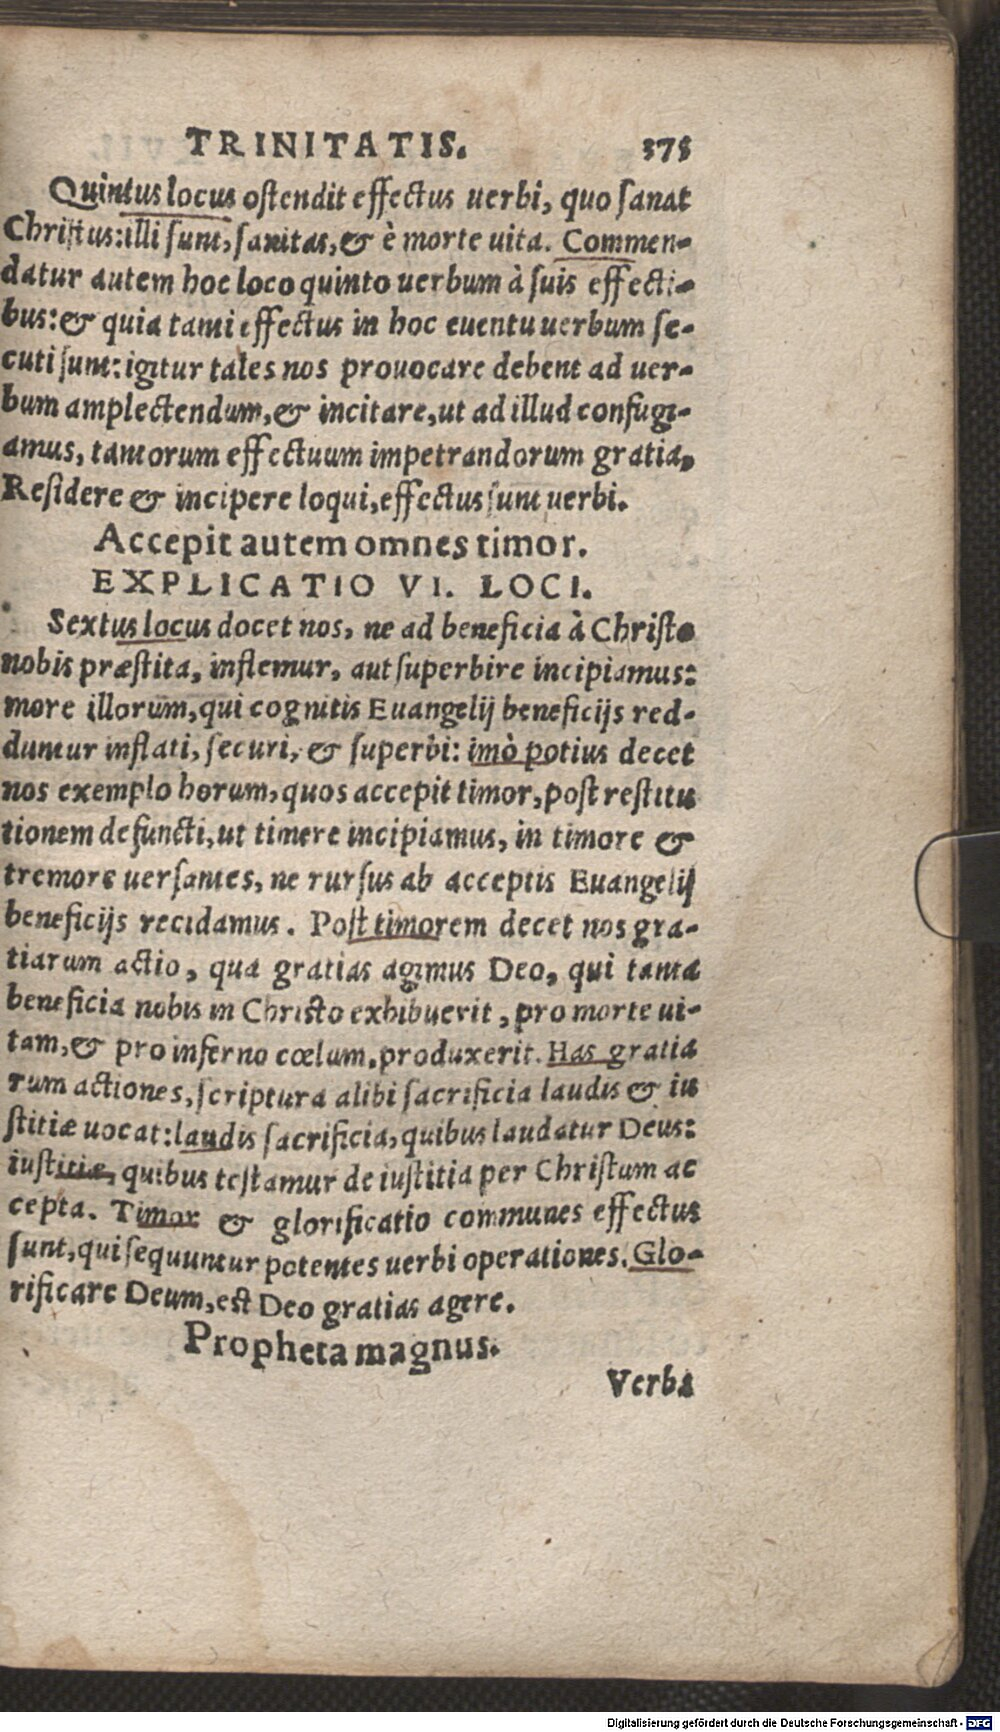 TRINITATIS. 375
Quintus locus ostendit effectus uerbi, quo sanat
Christus: illi sunt, sanitas, & è morte uita. Commen-
datur autem hoc loco quinto uerbum à suis effecti-
bus: & quia tanti effectus in hoc euentu uerbum se-
cuti sunt: igitur tales nos prouocare debent ad uer-
bum amplectendum, & incitare, ut ad illud confugi-
amus, tantorum effectuum impetrandorum gratia,
Residere & incipere loqui, effectus sunt uerbi.
Accepit autem omnes timor.
EXPLICATIO VI. LOCI.
Sextus locus docet nos, ne ad beneficia à Christo
nobis præstita, inflemur, aut superbire incipiamus:
more illorum, qui cognitis Euangelij beneficijs red-
duntur inflati, securi, & superbi: imò potius decet
nos exemplo horum, quos accepit timor, post restitu
tionem defuncti, ut timere incipiamus, in timore &
tremore uersantes, ne rursus ab acceptis Euangelij
beneficijs recidamus. Post timorem decet nos gra-
tiarum actio, qua gratias agimus Deo, qui tanta
beneficia nobis in Christo exhibuerit, pro morte ui-
tam, & pro inferno cœlum, produxerit. Has gratia
rum actiones, scriptura alibi sacrificia laudis & iu
stitiæ uocat: laudis sacrificia, quibus laudatur Deus:
iustitiæ, quibus testamur de iustitia per Christum ac
cepta. Timor & glorificatio communes effectus
sunt, qui sequuntur potentes uerbi operationes. Glo-
rificare Deum, est Deo gratias agere.
Propheta magnus.
Verba
Digitalisierung gefördert durch die Deutsche Forschungsgemeinschaft - DFG